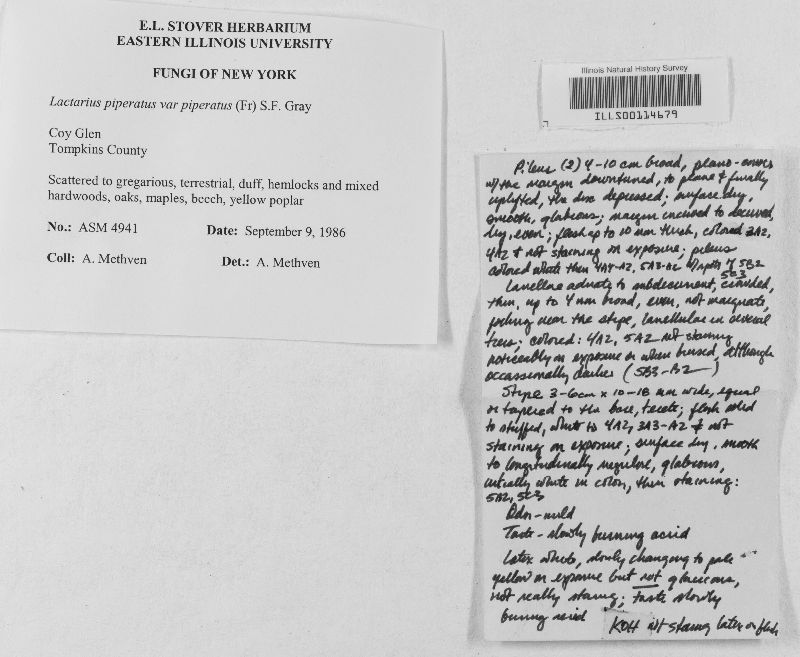 E.L. STOVER HERBARIUM
EASTERN ILLINOIS UNIVERSITY
FUNGI OF NEW YORK
Lactarius piperatus var piperatus (Fr) S.F. Gray
Coy Glen
Tompkins County
Scattered to gregarious, terrestrial, duff, hemlocks and mixed
hardwoods, oaks, maples, beech, yellow poplar
No.: ASM 4941 Date: September 9, 1986
Coll: A. Methven Det.: A. Methven
Illinois Natural History Survey
ILLS00114679
Pileus (2) 4-10 cm broad, plano-convex
w/the margin downturned, to plane & finally
uplifted, the disc depressed; surface dry,
smooth, glabrous; margin incurved to decurved,
dry, even; flesh up to 10 mm thick, colored 3A2,
4A2 & not staining on exposure; pileus
colored white then 4A4-A2, 5A3-A2 w/spots of 5B2
5B3
Lamellae adnate to subdecurrent, crowded,
thin, up to 4 mm broad, even, not marginate,
forking near the stipe, lamellulae in several
tiers; colored: 4A2, 5A2 not staining
noticeably on exposure or when bruised, although
occassionally darker (5B3-B2)
Stipe 3-6 cm x 10-18 mm wide, equal
or tapered to the base, terete; flesh solid
to stuffed, white to 4A2, 3A3-A2 & not
staining on exposure; surface dry, smooth
to longitudinally rugulose, glabrous,
initially white in color, then staining:
5A2, 5C3
Odor-mild
Taste - slowly burning acrid
Latex white, slowly changing to pale
yellow on exposure but not glaucous,
not really staining; taste slowly
burning acrid
KOH not staining latex or flesh